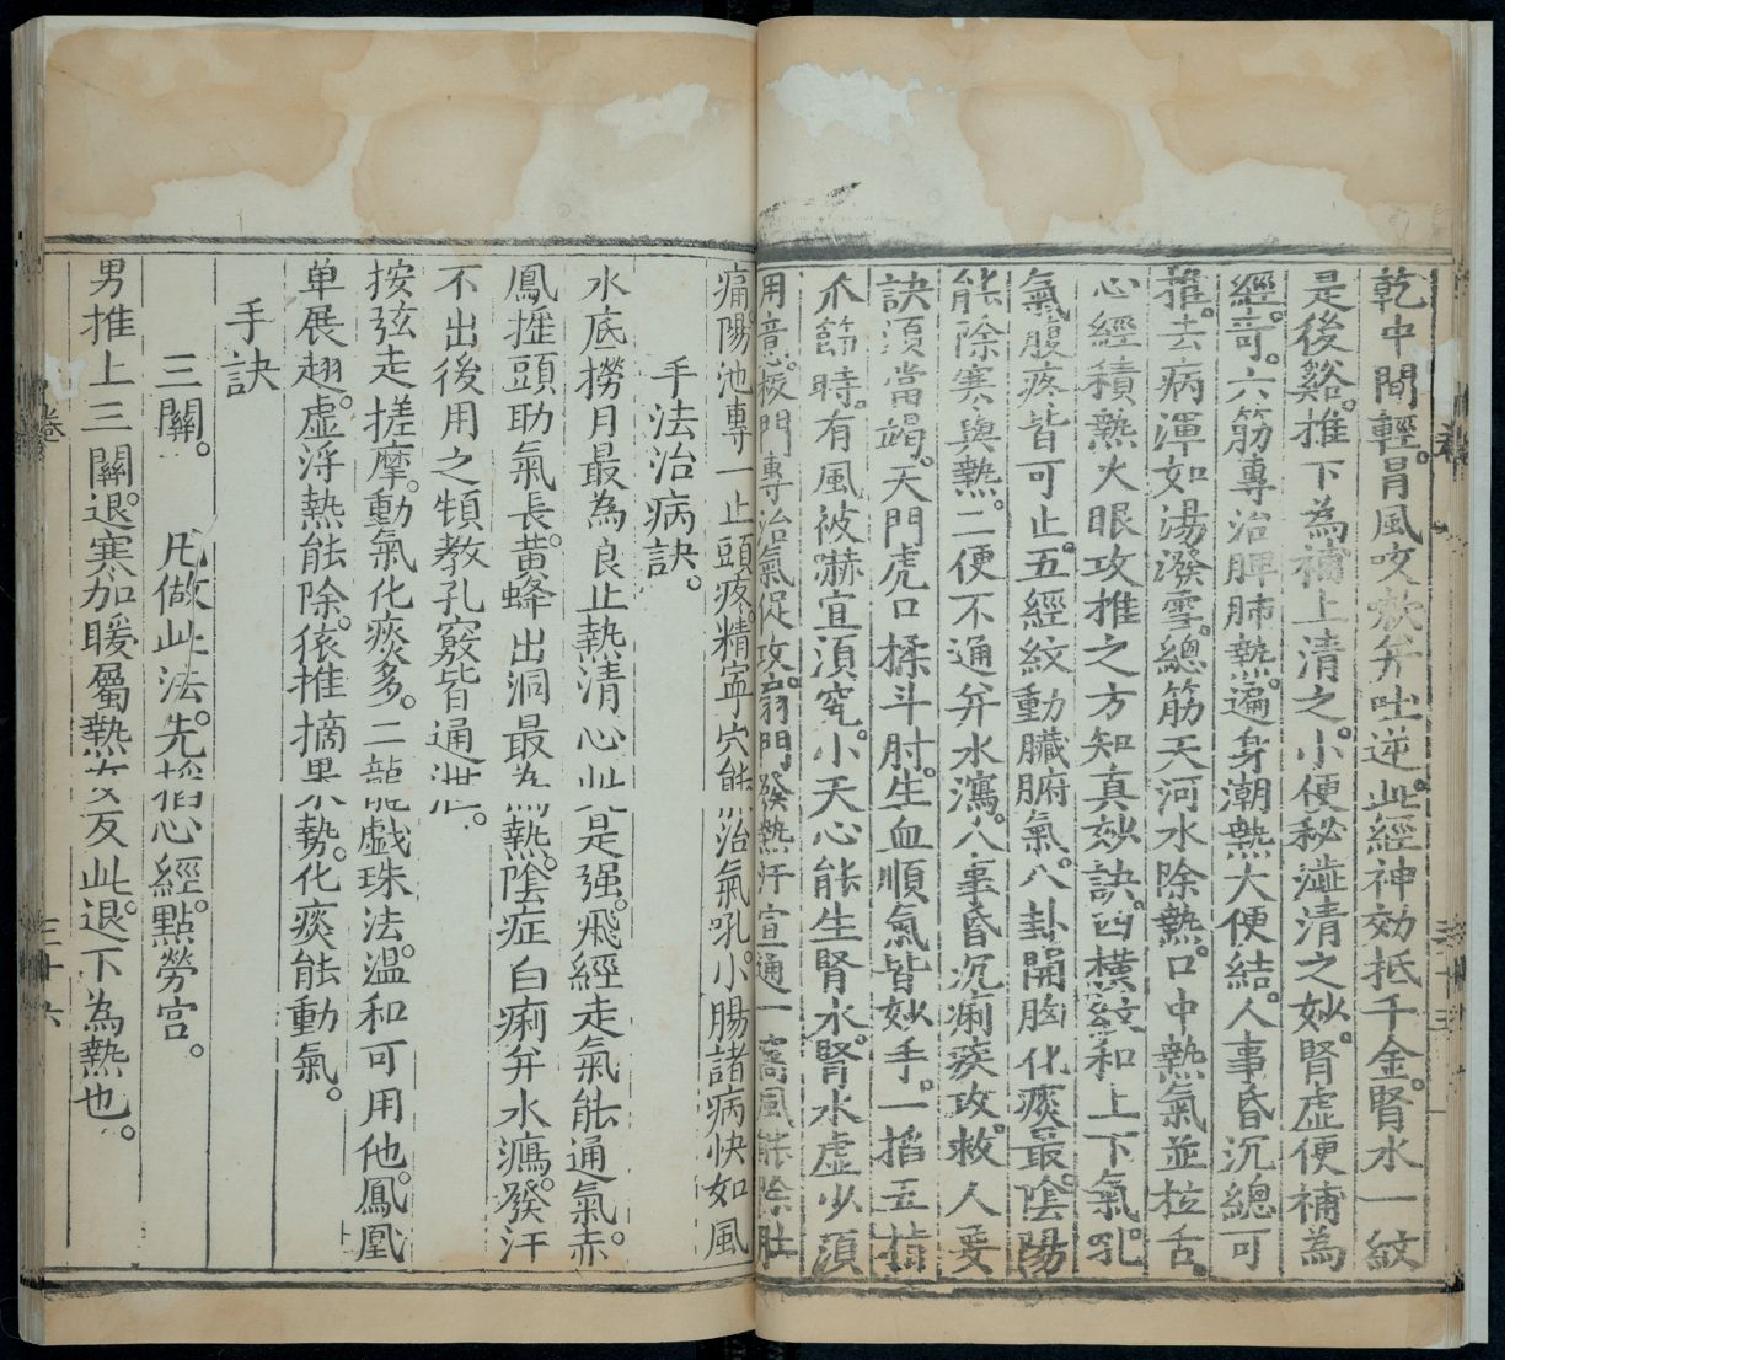 乾中間輕。胃風咳嗽并吐逆。此經神効抵千金。腎水一紋
是後谿。推下為補上清之。小便秘澁清之妙。腎虚便補為
經竒。六筋專治脾肺熱。遍身潮熱大便結。人事昏沉總可
推。去病渾如湯潑雪。總筋天河水除熱。口中熱氣並拉舌。
心經積熱火眼攻推之方知真妙訣。四橫紋和上下氣。吼
氣腹疼皆可止。五經紋動臟腑氣。八卦開胸化痰最。陰陽
能除寒與熱。二便不通并水瀉。八事昏沉痢疾攻。救人要
訣須當竭。天門虎口揉斗肘。生血順氣皆妙手。一掐五指
爪節時。有風被嚇宜須究。小天心能生腎水。腎水虚少須
用意。板門專治氣促攻。扇門發熱汗宣通一窩風能除肚
痛。陽池專一止頭疼。精寧穴能治氣吼。小腸諸病快如風
手法治病訣。
水底撈月最為良止熱清心此是强。飛經走氣能通氣。赤
鳳搖頭助氣長。黄蜂出洞最為熱。陰症白痢并水瀉。發汗
不出後用之頓教孔竅皆通泄。
按弦走搓摩。動氣化痰多。二龍戲珠法。温和可用他。鳳凰
单展翅。虚浮熱能除。猿推摘果勢。化痰能動氣。
手訣
三關。凡做此法。先掐心經。點勞宫。
男推上三關。退寒加暖屬熱女反此。退下為熱也。
卷
三十六